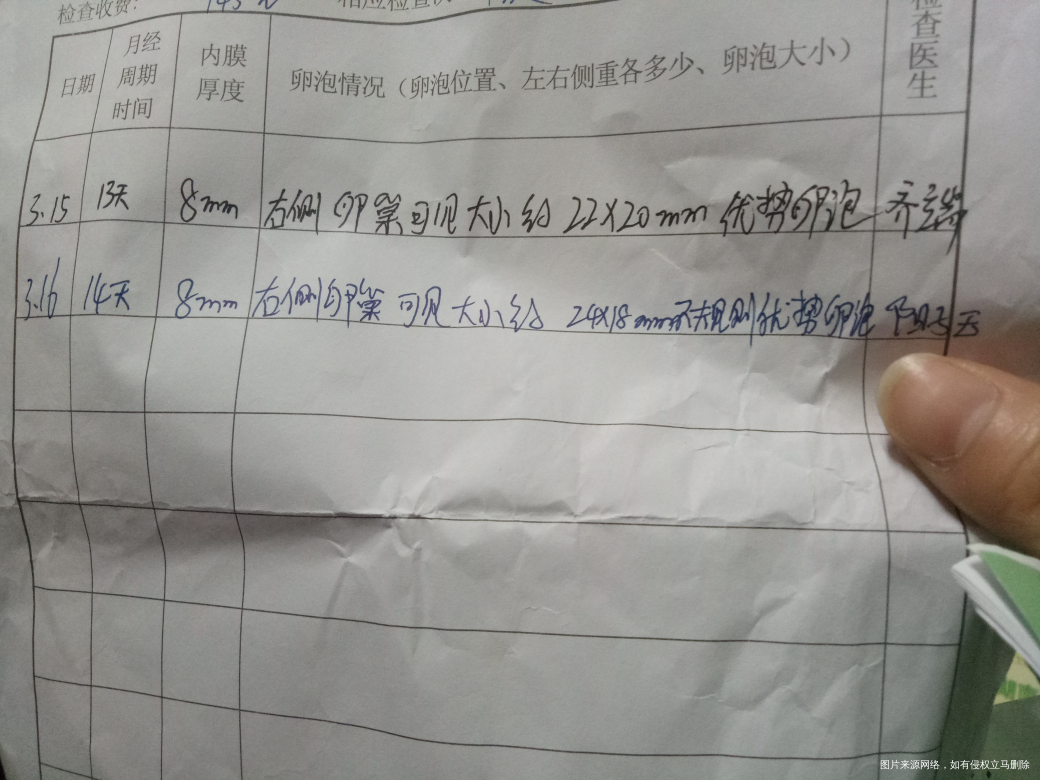 检查收费:
日期 月经周期时间 内膜厚度 卵泡情况（卵泡位置、左右侧重各多少、卵泡大小） 检查医生
3.15 13天 8mm 右侧卵巢可见大小约22X20mm优势卵泡 齐
3.16 14天 8mm 右侧卵巢可见大小约24X18mm不规则优势卵泡
图片来源网络，如有侵权立马删除